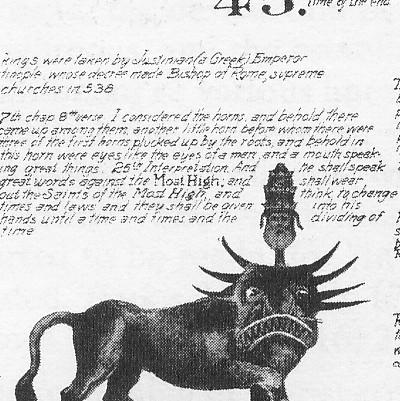 43.
time of the end
kings were taken by Justinian (a Greek) Emperor
tinople, whose decree made Bishop of Rome, supreme
churches in 538
7th chap 8th verse. I considered the horns, and behold, there
came up among them, another little horn before whom there were
three of the first horns plucked up by the roots, and behold in
this horn were eyes like the eyes of a men, and a mouth speak-
ing great things. 25th Interpretation. And he shall speak
great words against the Most High, and shall wear
out the Saints of the Most High, and think to change
times and laws and they shall be given into his
hands until a time and times and the dividing of
time